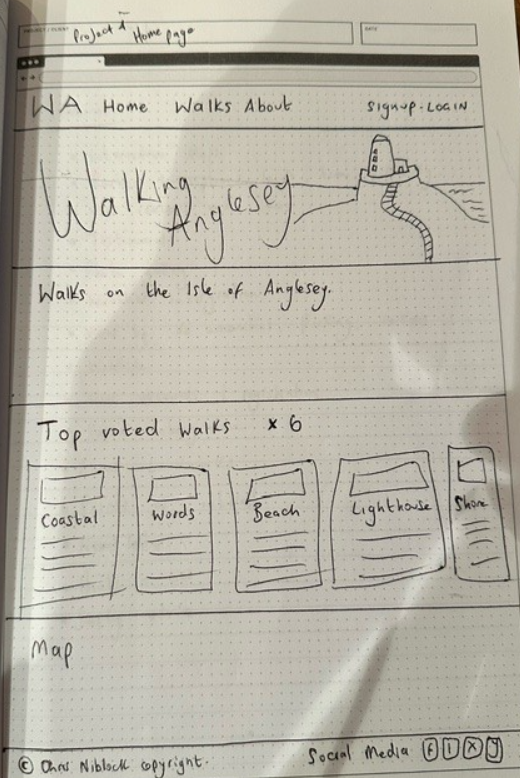 PROJECT / CLIENT Project 1 Home page
DATE
WA Home Walks About Signup. LOGIN
Walking
Anglesey
Walks on the Isle of Anglesey.
Top voted walks x 6
Coastal Words Beach Lighthouse Shore
Map
© Chris Niblock copyright. Social Media F I X Y